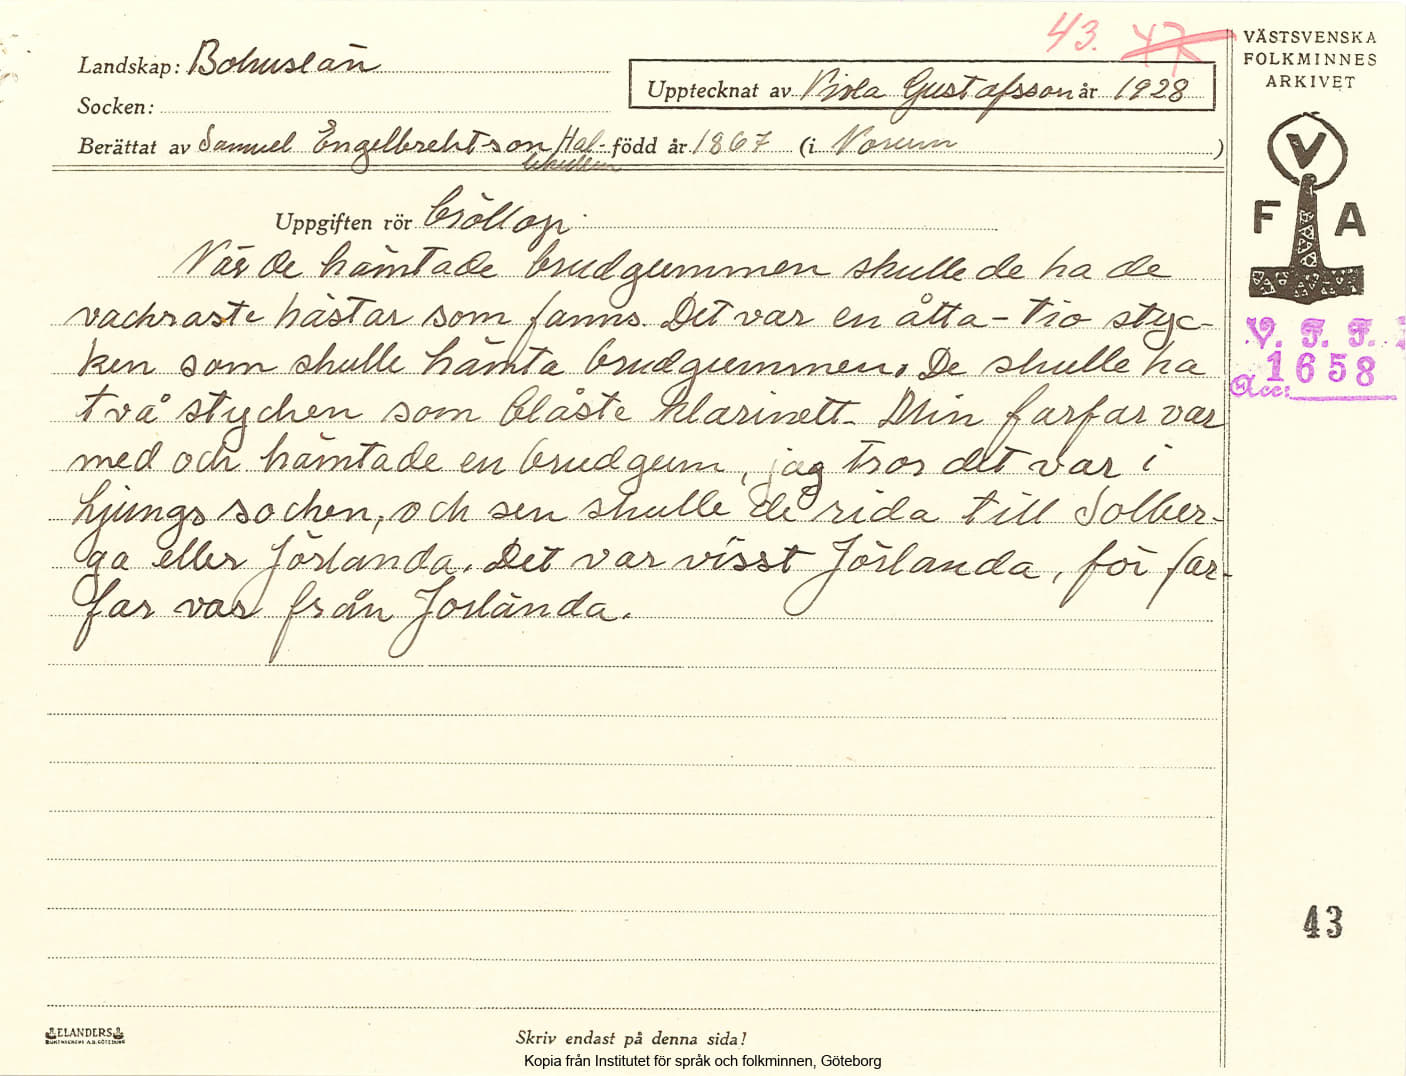 43. 47
Landskap: Bohuslän
Socken:
Upptecknat av Viola Gustafsson år 1928
Berättat av Samuel Engelbrektson, Hal- född år 1867 (i Norum)
lekullen
Uppgiften rör Bröllop.
När de hämtade brudgummen skulle de ha de
vackraste hästar som fanns. Det var en åtta-tio styc-
ken som skulle hämta brudgummen. De skulle ha
två stycken som blåste klarinett. Min farfar var
med och hämtade en brudgum, jag tror det var i
Ljungs socken, och sen skulle de rida till Solber-
ga eller Jörlanda. Det var visst Jörlanda, för far-
far var från Jörlanda.
VÄSTSVENSKA
FOLKMINNES
ARKIVET
V
F A
V. F. F.
Acc: 1658
43
ELANDERS
BOKTRYCKERI A.B. GÖTEBORG
Skriv endast på denna sida!
Kopia från Institutet för språk och folkminnen, Göteborg